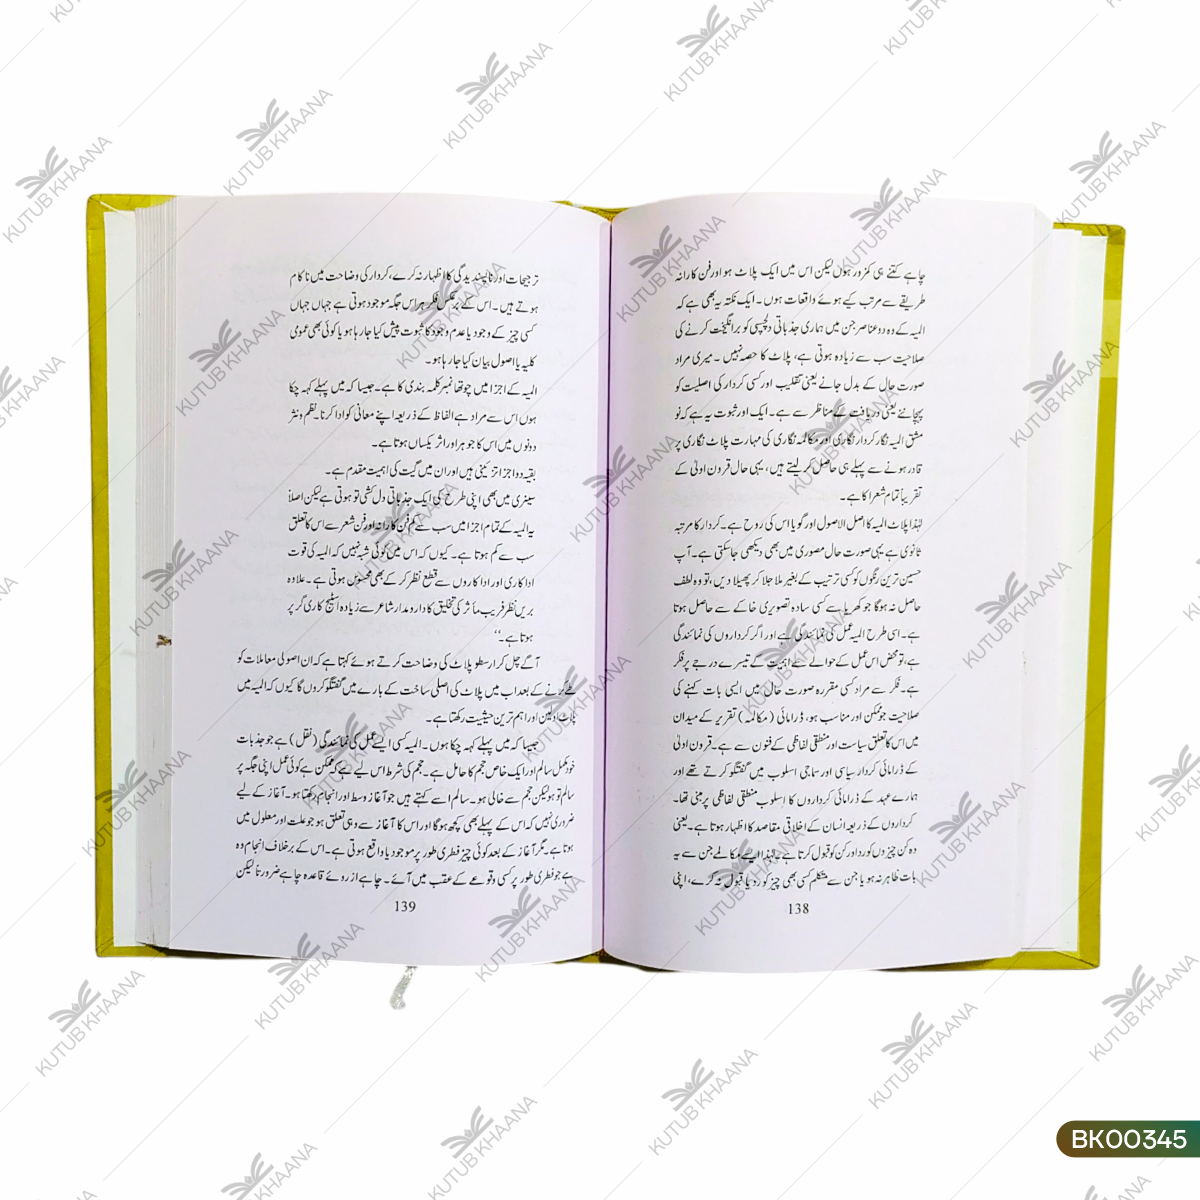 چاہے کتنے ہی کمزور ہوں لیکن اس میں ایک پلاٹ ہو اور فن کارانہ
طریقے سے مرتب کیے ہوئے واقعات ہوں۔ ایک نکتہ یہ بھی ہے کہ
المیہ کے وہ دو عناصر جن میں ہماری جذباتی دلچسپی کو برانگیخت کرنے کی
صلاحیت سب سے زیادہ ہوتی ہے، پلاٹ کا حصہ نہیں۔ میری مراد
صورت حال کے بدل جانے یعنی تقلیب اور کسی کردار کی اصلیت کو
پہچاننے یعنی دریافت کے مناظر سے ہے۔ ایک اور ثبوت یہ ہے کہ نو
مشق المیہ نگار کردار نگاری اور مکالمہ نگاری کی مہارت پلاٹ نگاری پر
قادر ہونے سے پہلے ہی حاصل کر لیتے ہیں، یہی حال قرون اولیٰ کے
تقریباً تمام شعرا کا ہے۔
لہٰذا پلاٹ المیہ کا اصل الاصول اور گویا اس کی روح ہے۔ کردار کا مرتبہ
ثانوی ہے یہی صورت حال مصوری میں بھی دیکھی جاسکتی ہے۔ آپ
حسین ترین رنگوں کو کسی ترتیب کے بغیر ملا جلا کر پھیلا دیں، تو وہ لطف
حاصل نہ ہوگا جو کھریا سے کسی سادہ تصویری خاکے سے حاصل ہوتا
ہے۔ اسی طرح المیہ عمل کی نمائندگی ہے اور اگر کرداروں کی نمائندگی
ہے، تو محض اس عمل کے حوالے سے اہمیت کے تیسرے درجے پر فکر
ہے۔ فکر سے مراد کسی مقررہ صورت حال میں ایسی بات کہنے کی
صلاحیت جو ممکن اور مناسب ہو، ڈرامائی (مکالمہ) تقریر کے میدان
میں اس کا تعلق سیاست اور منطقی لفاظی کے فنون سے ہے۔ قرون اولیٰ
کے ڈرامائی کردار سیاسی اور سماجی اسلوب میں گفتگو کرتے تھے اور
ہمارے عہد کے ڈرامائی کرداروں کا اسلوب منطقی لفاظی پر مبنی تھا۔
کرداروں کے ذریعہ انسان کے اخلاقی مقاصد کا اظہار ہوتا ہے۔ یعنی
وہ کن چیزوں کو رد اور کن کو قبول کرتا ہے۔ لہٰذا ایسے مکالمے جن سے یہ
بات ظاہر نہ ہو یا جن سے متکلم کسی بھی چیز کو رد یا قبول نہ کرے، اپنی
138
ترجیحات اور ناپسندیدگی کا اظہار نہ کرے، کردار کی وضاحت میں ناکام
ہوتے ہیں۔ اس کے برعکس فکر ہر اس جگہ موجود ہوتی ہے جہاں جہاں
کسی چیز کے وجود یا عدم وجود کا ثبوت پیش کیا جا رہا ہو یا کوئی بھی عمومی
کلیہ یا اصول بیان کیا جا رہا ہو۔
المیہ کے اجزا میں چوتھا نمبر کلمہ بندی کا ہے۔ جیسا کہ میں پہلے کہہ چکا
ہوں اس سے مراد ہے الفاظ کے ذریعہ اپنے معانی کو ادا کرنا۔ نظم و نثر
دونوں میں اس کا جوہر اور اثر یکساں ہوتا ہے۔
بقیہ دو اجزا تزئینی ہیں اور ان میں گیت کی اہمیت مقدم ہے۔
سینری میں بھی اپنی طرح کی ایک جذباتی دل کشی تو ہوتی ہے لیکن اصلاً
یہ المیہ کے تمام اجزا میں سب سے کم فن کارانہ اور فن شعر سے اس کا تعلق
سب سے کم ہوتا ہے۔ کیوں کہ اس میں کوئی شبہ نہیں کہ المیہ کی قوت
اداکاری اور اداکاروں سے قطع نظر کر کے بھی محسوس ہوتی ہے۔ علاوہ
بریں نظر فریب تاثر کی تخلیق کا دارومدار شاعر سے زیادہ اسٹیج کاری گر پر
ہوتا ہے۔‘‘
آگے چل کر ارسطو پلاٹ کی وضاحت کرتے ہوئے کہتا ہے کہ ان اصولی معاملات کو
طے کرنے کے بعد اب میں پلاٹ کی اصلی ساخت کے بارے میں گفتگو کروں گا کیوں کہ المیہ میں
پلاٹ اولین اور اہم ترین حیثیت رکھتا ہے۔
جیسا کہ میں پہلے کہہ چکا ہوں۔ المیہ کسی ایسے عمل کی نمائندگی (نقل) ہے جو جذبات
خود مکمل سالم اور ایک خاص حجم کا حامل ہے۔ حجم کی شرط اس لیے ہے کہ ممکن ہے کوئی عمل اپنی جگہ پر
سالم تو ہو لیکن حجم سے خالی ہو۔ سالم اسے کہتے ہیں جو آغاز وسط اور انجام رکھتا ہو۔ آغاز کے لیے
ضروری نہیں کہ اس کے پہلے بھی کچھ ہوگا اور اس کا آغاز سے وہی تعلق ہو جو علت اور معلول میں
ہوتا ہے۔ مگر آغاز کے بعد کوئی چیز فطری طور پر موجود یا واقع ہوتی ہے۔ اس کے برخلاف انجام وہ
ہے جو فطری طور پر کسی وقوعے کے عقب میں آئے۔ چاہے از روئے قاعدہ چاہے ضرورتاً لیکن
139
KUTUB KHAANA
BK00345